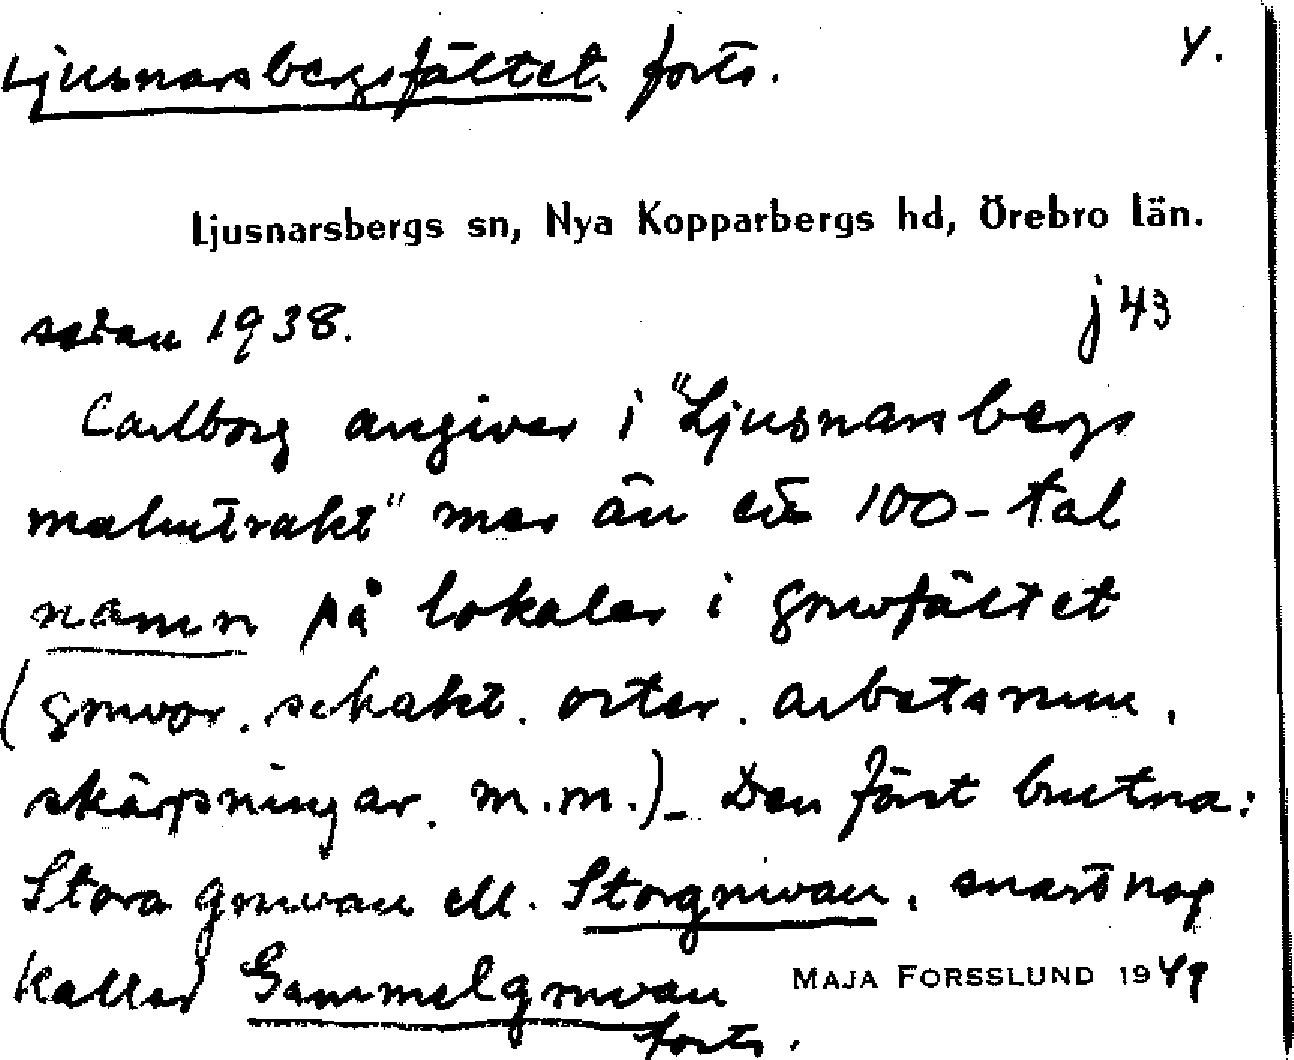 Ljusnarsbergsfältet. forts. 4.
Ljusnarsbergs sn, Nya Kopparbergs hd, Örebro län.
sedan 1938. j 43
Carlborg angiver i "Ljusnarsbergs
malmtrakt" mer än ett 100-tal
namn på lokaler i gruvfältet
(gruvor, schakt, orter, arbetsrum,
skärpningar, m.m.)_ Den först brutna:
Stora gruvan ell. Storgruvan, snart nog
kallad Gammelgruvan
forts.
MAJA FORSSLUND 1949